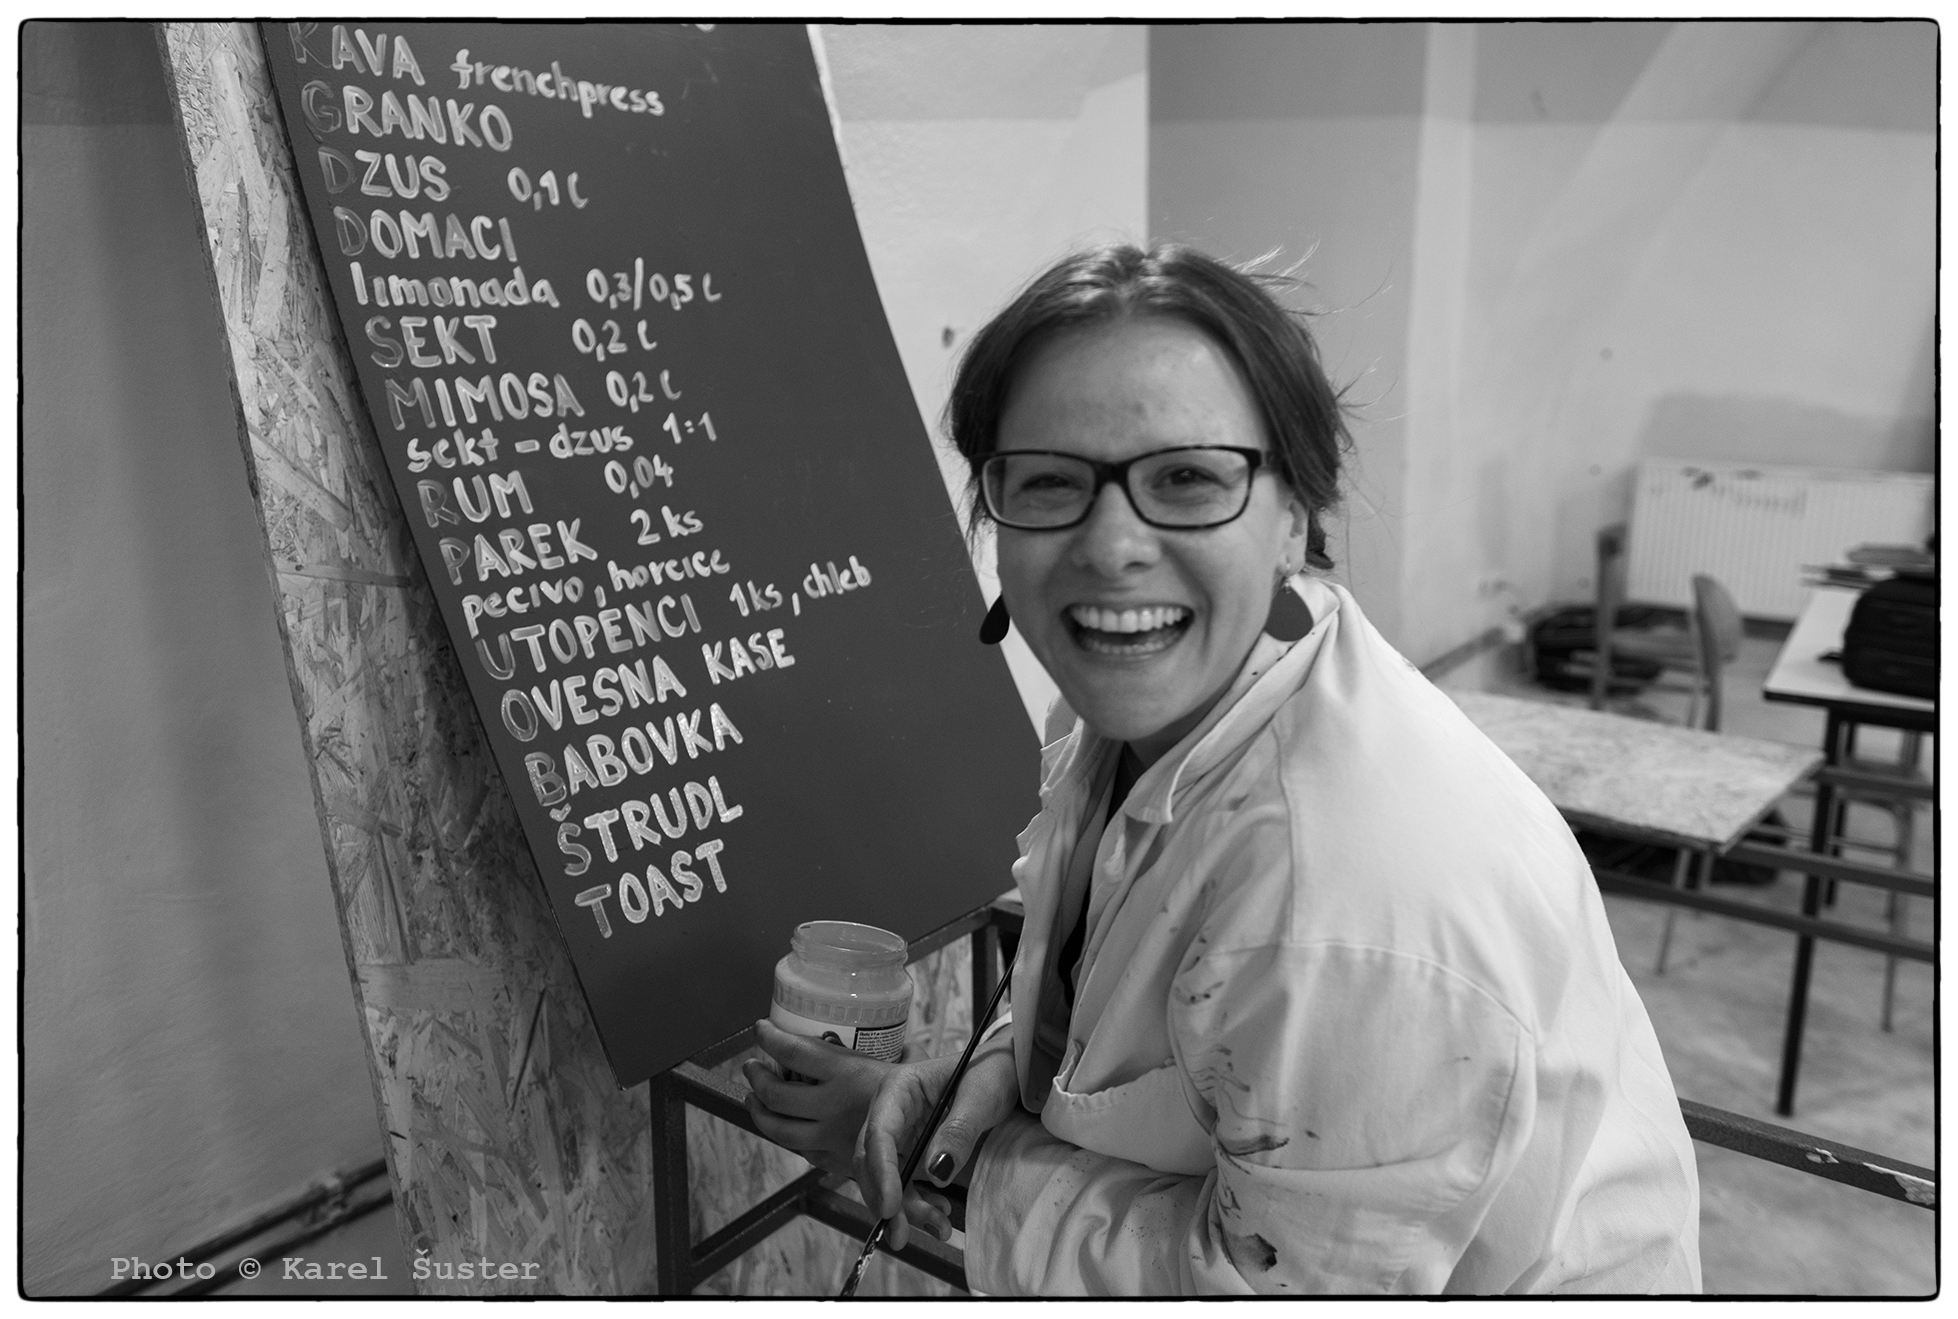 KAVA frenchpress
GRANKO
DZUS 0,1 l
DOMACI
limonada 0,3/0,5 l
SEKT 0,2 l
MIMOSA 0,2 l
sekt - dzus 1:1
RUM 0,04
PAREK 2 ks
pecivo, horcice
UTOPENCI 1ks, chleb
OVESNA KASE
BABOVKA
ŠTRUDL
TOAST
Photo © Karel Šuster